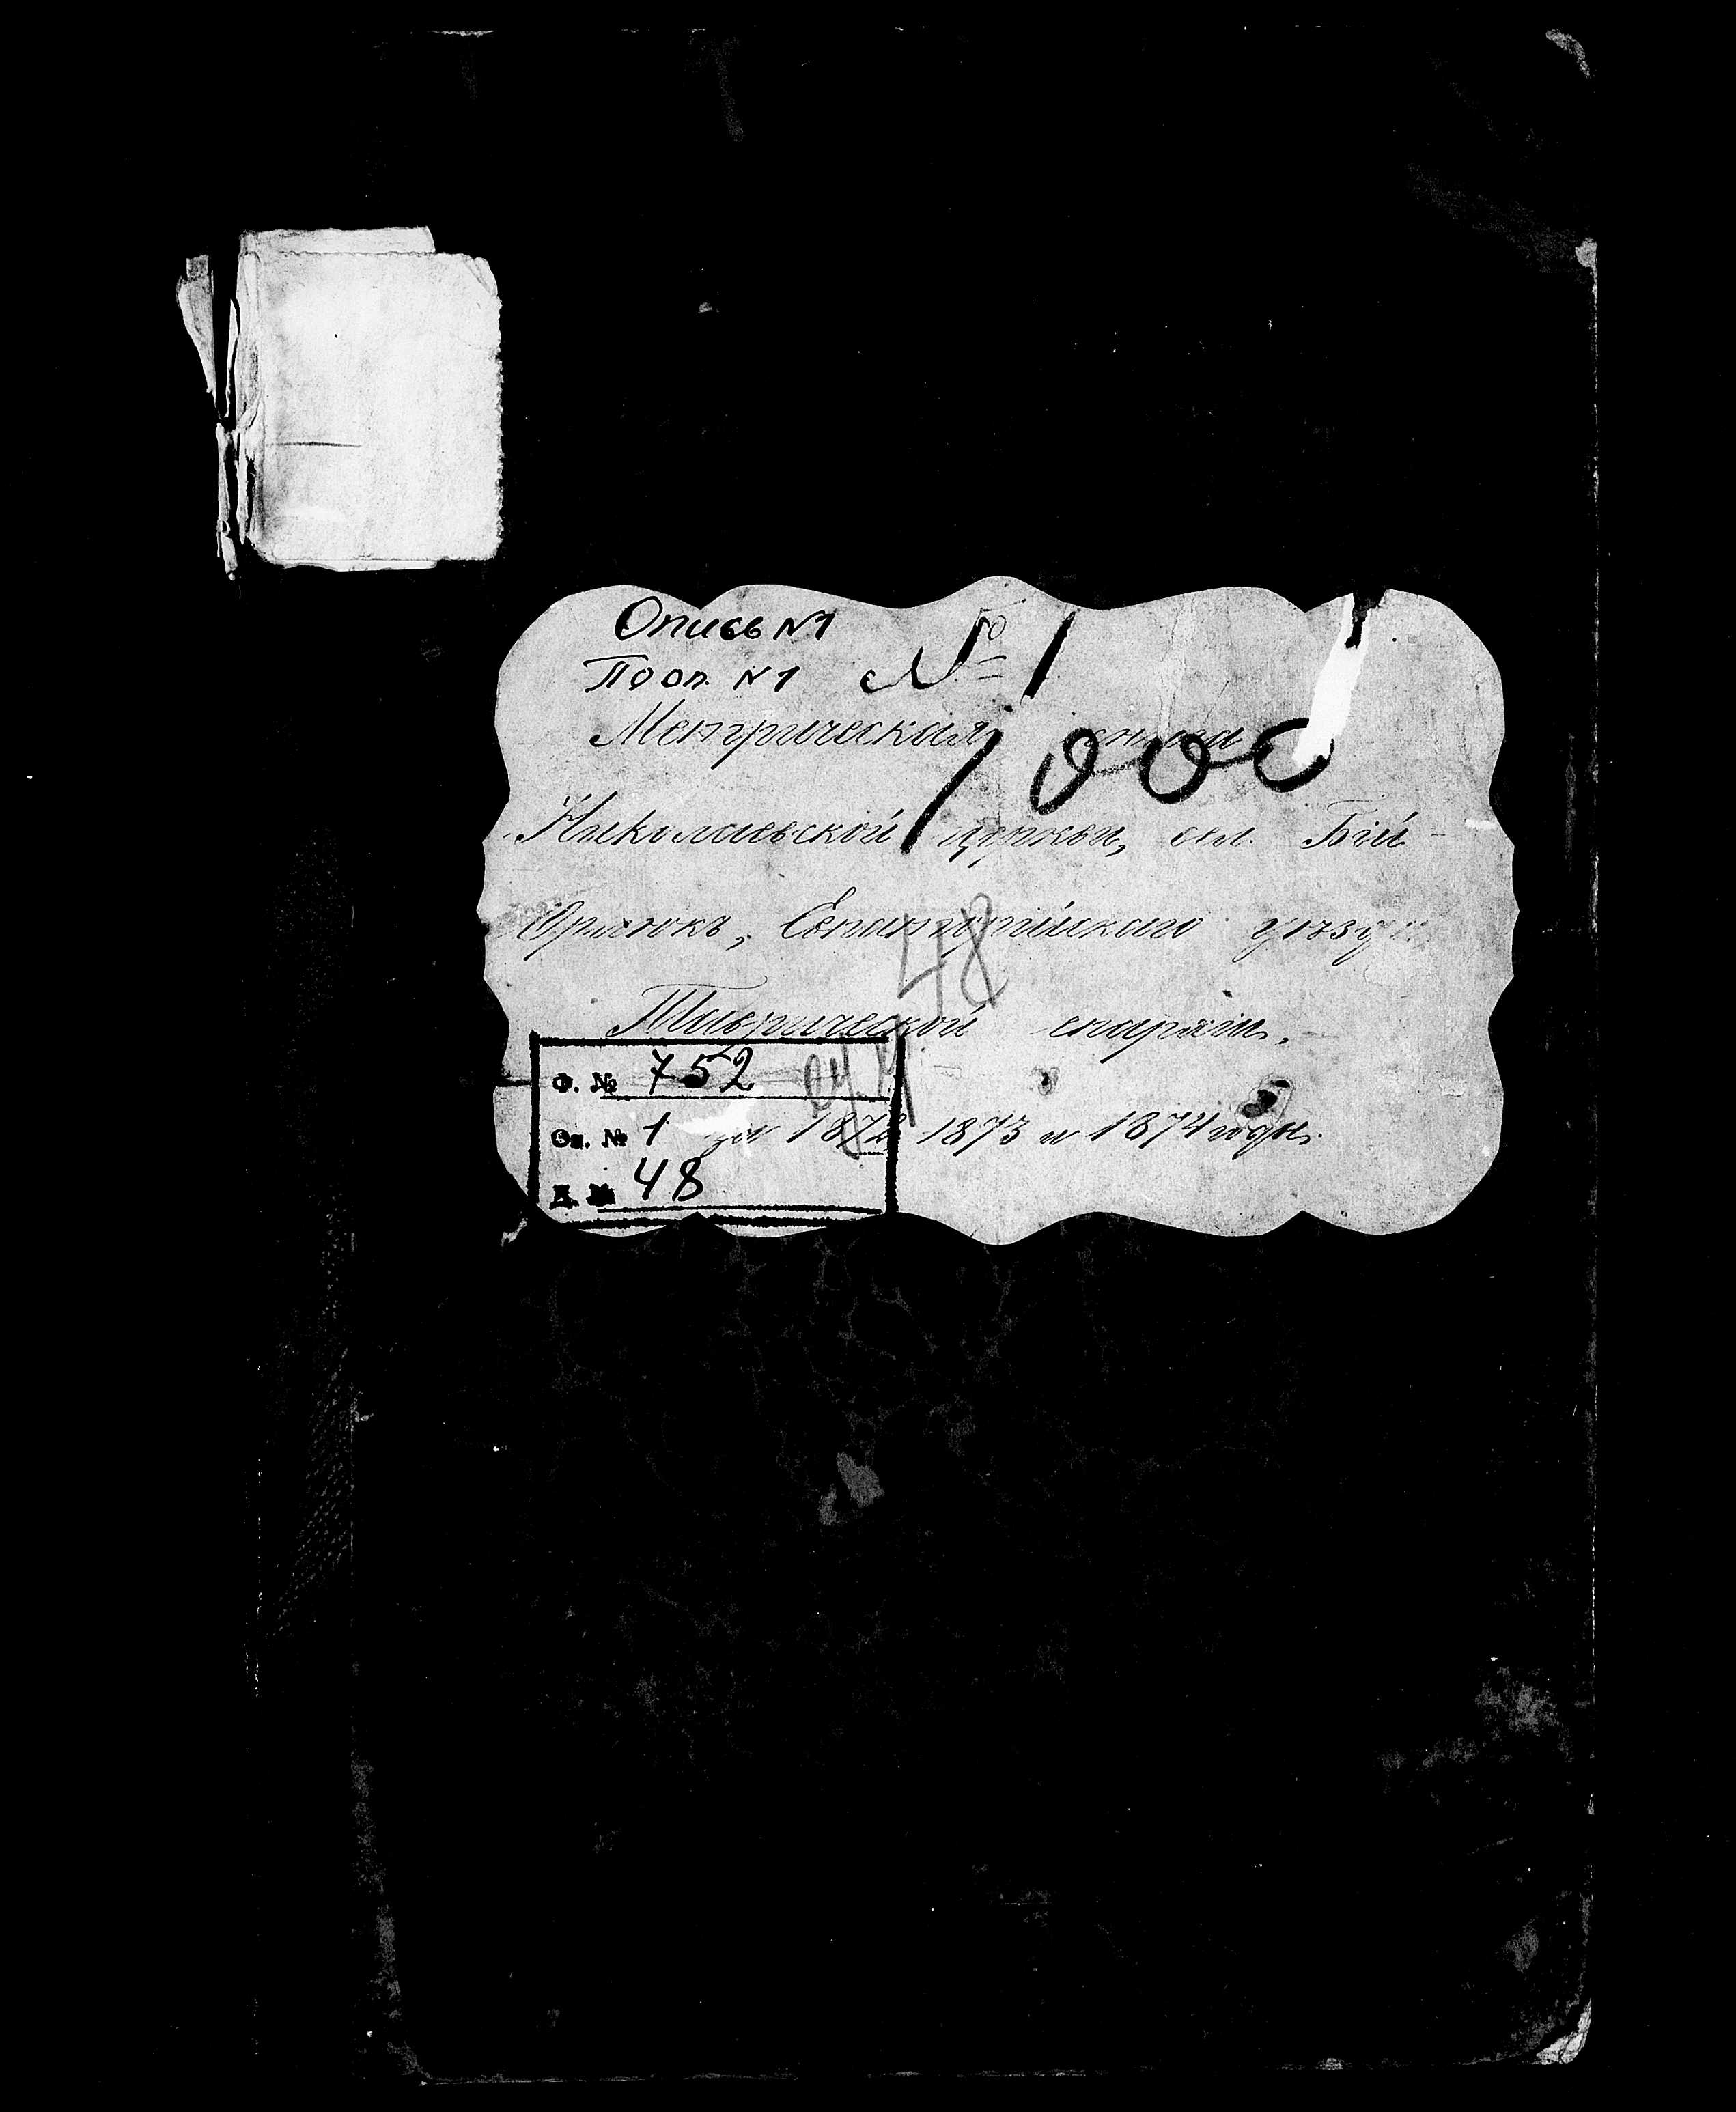 Опись №1
По оп. №1 № 1
Метрическая книга
1000
Николаевской церкви, сел. Бій-
Орлюкъ, Евпаторійскаго уѣзда
48
Таврической епархіи,
Ф. № 752
Оп. № 1 за 1872, 1873 и 1874 годы.
Д. № 48